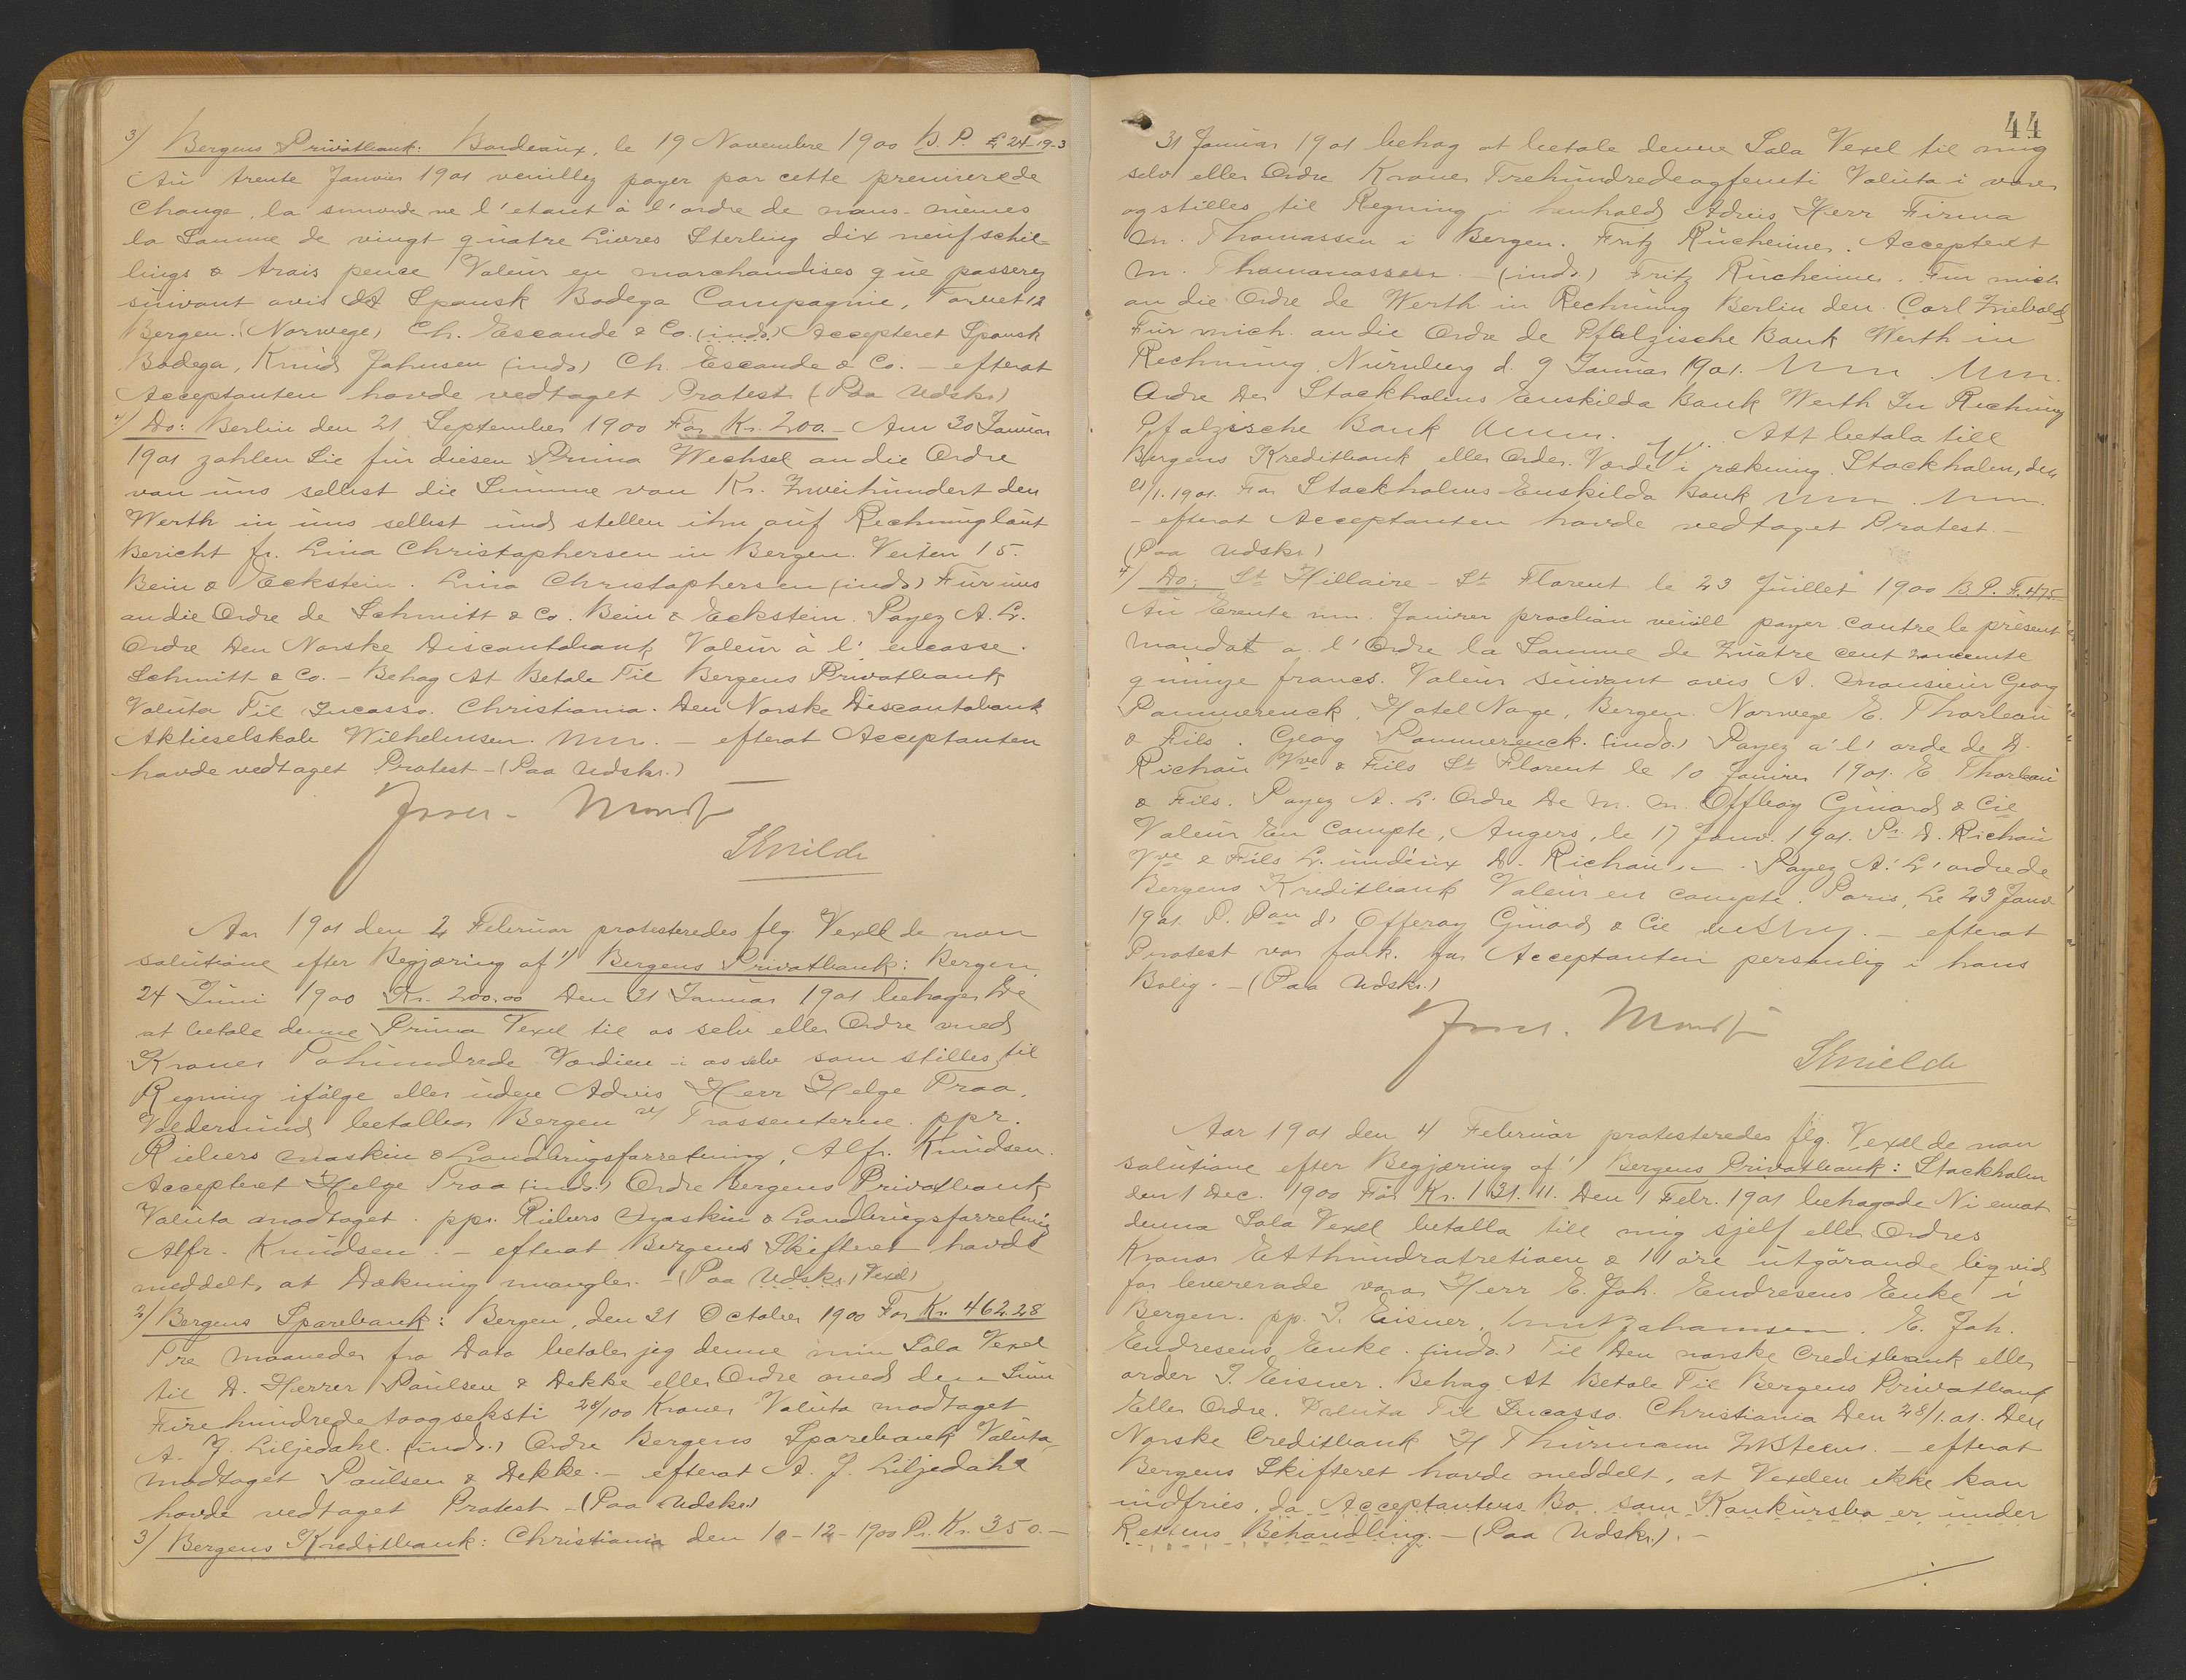 3) Bergens Privatbank: Bordeaux, le 19 Novembre 1900 B. P. £ 24-19-3
Au trente Janvier 1901 veuillez payer par cette premierede
Change, la seconde ne l'etant à l'ordre de nous-mèmes
la Somme de vingt quatre Livres Sterling dix neuf schil-
lings & trois pence Valeur en marchandises que passerez
suivant avis Spansk Bodega Compagnie, Torvet 12
Bergen. (Norwege) Ch. Escande & Co. (indo.) Accepteret Spansk
Bodega, Knud Johnsen (indo) Ch. Escande & Co. – efterat
Acceptanten havde vedtaget Protest (Paa Udskr.)
4) Do: Berlin den 21 September 1900 For Kr. 200.- Am 30 Januar
1901 zahlen Sie für diesen Prima Wechsel an die Ordre
von uns selbst die Summe von Kr. Zweihundert den
Werth in uns selbst und stellen ihn auf Rechnung laut
Bericht fr. Lina Christophersen in Bergen. Veiten 15.
Bein & Eckstein. Lina Christophersen (indo) Für uns
an die Ordre de Schmitt & Co. Bein & Eckstein. Payez A. L.
Ordre Den Norske Discontobank Valeur à l' encasse.
Schmitt & Co. – Behag At Betale Til Bergens Privatbank
Valuta Til Incasso. Christiania. Den Norske Discontobank
Aktieselskab Wilhelmsen. – efterat Acceptanten
havde vedtaget Protest – (Paa Udskr.)
Skuilde
Aar 1901 den 2 Februar protesteredes flg. Vexel de non
solutione efter Begjæring af 1) Bergens Privatbank: Bergen,
24 Juni 1900 Kr. 200.00 Den 31 Januar 1901 behager De
at betale denne Prima Vexel til os selv eller Ordre med
Kroner Tohundrede Værdien i os selv som stilles til
Regning ifølge eller uden Advis Herr Helge Traa,
Voldersund betalbar Bergen v/ Trassenterne. ppr.
Riebers Maskin & Landbrugsforretning, Alfr. Knudsen.
Accepteret Helge Traa (indo.) Ordre Bergens Privatbank
Valuta modtaget. ppr. Riebers Maskin & Landbrugsforretning
Alfr. Knudsen. – efterat Bergens Skifteret havde
meddelt, at Dækning mangler. – (Paa Udskr.) Vexel)
2) Bergens Sparebank: Bergen, den 31 October 1900 For Kr. 462.28
Tre maaneder fra Dato betaler jeg denne min Sola Vexel
til D. Herrer Paulsen & Dekke eller Ordre med den Sum
Firehundredetoogseksti 28/100 Kroner Valuta modtaget
A. J. Liljedahl. (indo.) Ordre Bergens Sparebank Valuta
modtaget Paulsen & Dekke. – efterat A. J. Liljedahl
havde vedtaget Protest – (Paa Udskr.)
3) Bergens Kreditbank: Christiania den 10-12-1900 Pr. Kr. 350.–
44
31 Januar 1901 behag at betale denne Sola Vexel til mig
selv eller Ordre Kroner Trehundredeogfemti Valuta i varer
og stilles til Regning i henhold Advis Herr Firma
M. Thomassen i Bergen. Fritz Rücheimer. Accepteret
M. Thomassen. – (indo) Fritz Rücheimer. Für mich
an die Ordre de Werth in Rechnung Berlin den. Carl Friebold
Für mich an die Ordre de Pfalzische Bank Werth in
Rechnung Nürnberg d. 9 Januar 1901.
Ordre Der Stockholms Enskilda Bank Werth In Rechnung
Pfalzische Bank. Att betala till
Bergens Kreditbank eller Order. Värde i räkning. Stockholm, den
21/1.1901. For Stockholms Enskilda Bank
– efterat Acceptanten havde vedtaget Protest. –
(Paa Udskr.)
4) Do: St Hillaire - St Florent le 23 Juillet 1900 B. P. F. 475-
Au Trente Janvier prochain payer contre le présent
mandat a l'Ordre la Somme de quatre cent
quinze francs. Valeur suivant avis A. Monsieur Georg
Pommerenck, Hotel Norge, Bergen. Norwege E. Thorleau
& Fils. Georg Pommerenck. (indo.) Payez a l' orde de D.
Richou Vve & Fils St Florent le 10 Janvier 1901. E. Thorleau
& Fils. Payez A. L. Ordre De M. M. Offroy Guiard & Cie
Valeur En Compte, Angers, le 17 Janv. 1901. Pr D. Richou
Vve & Fils D. Richou. – Payez A. L' ordre de
Bergens Kreditbank Valeur en compte. Paris, Le 23 Janv
1901. P. Pon d' Offeroy Guiard & Cie – efterat
Protest var fork. for Acceptanten personlig i hans
Bolig. – (Paa Udskr.)
Skuilde
Aar 1901 den 4 Februar protesteredes flg. Vexel de non
solutione efter Begjæring af 1) Bergens Privatbank: Stockholm
den 1 Dec. 1900 För Kr. 131.11. Den 1 Febr. 1901 behagade Ni emot
denna Sola Vexel betalla till mig sjelf eller Ordres
Kronor Etthundratrettioen & 11 öre utgörande liqvid
for levererade varor Herr E. Joh. Endresens Enke i
Bergen. pp. J. Eisner. E. Joh.
Endresens Enke. (indo.) Til Den norske Creditbank eller
order J. Eisner. Behag At Betale Til Bergens Privatbank
Eller Ordre. Valuta Til Incasso. Christiania Den 28/1.01. Den
Norske Creditbank H Thurmann – efterat
Bergens Skifteret havde meddelt, at Vexelen ikke kan
indfries, da Acceptantens Bo som Konkursbo er under
Rettens Behandling. – (Paa Udskr.). –